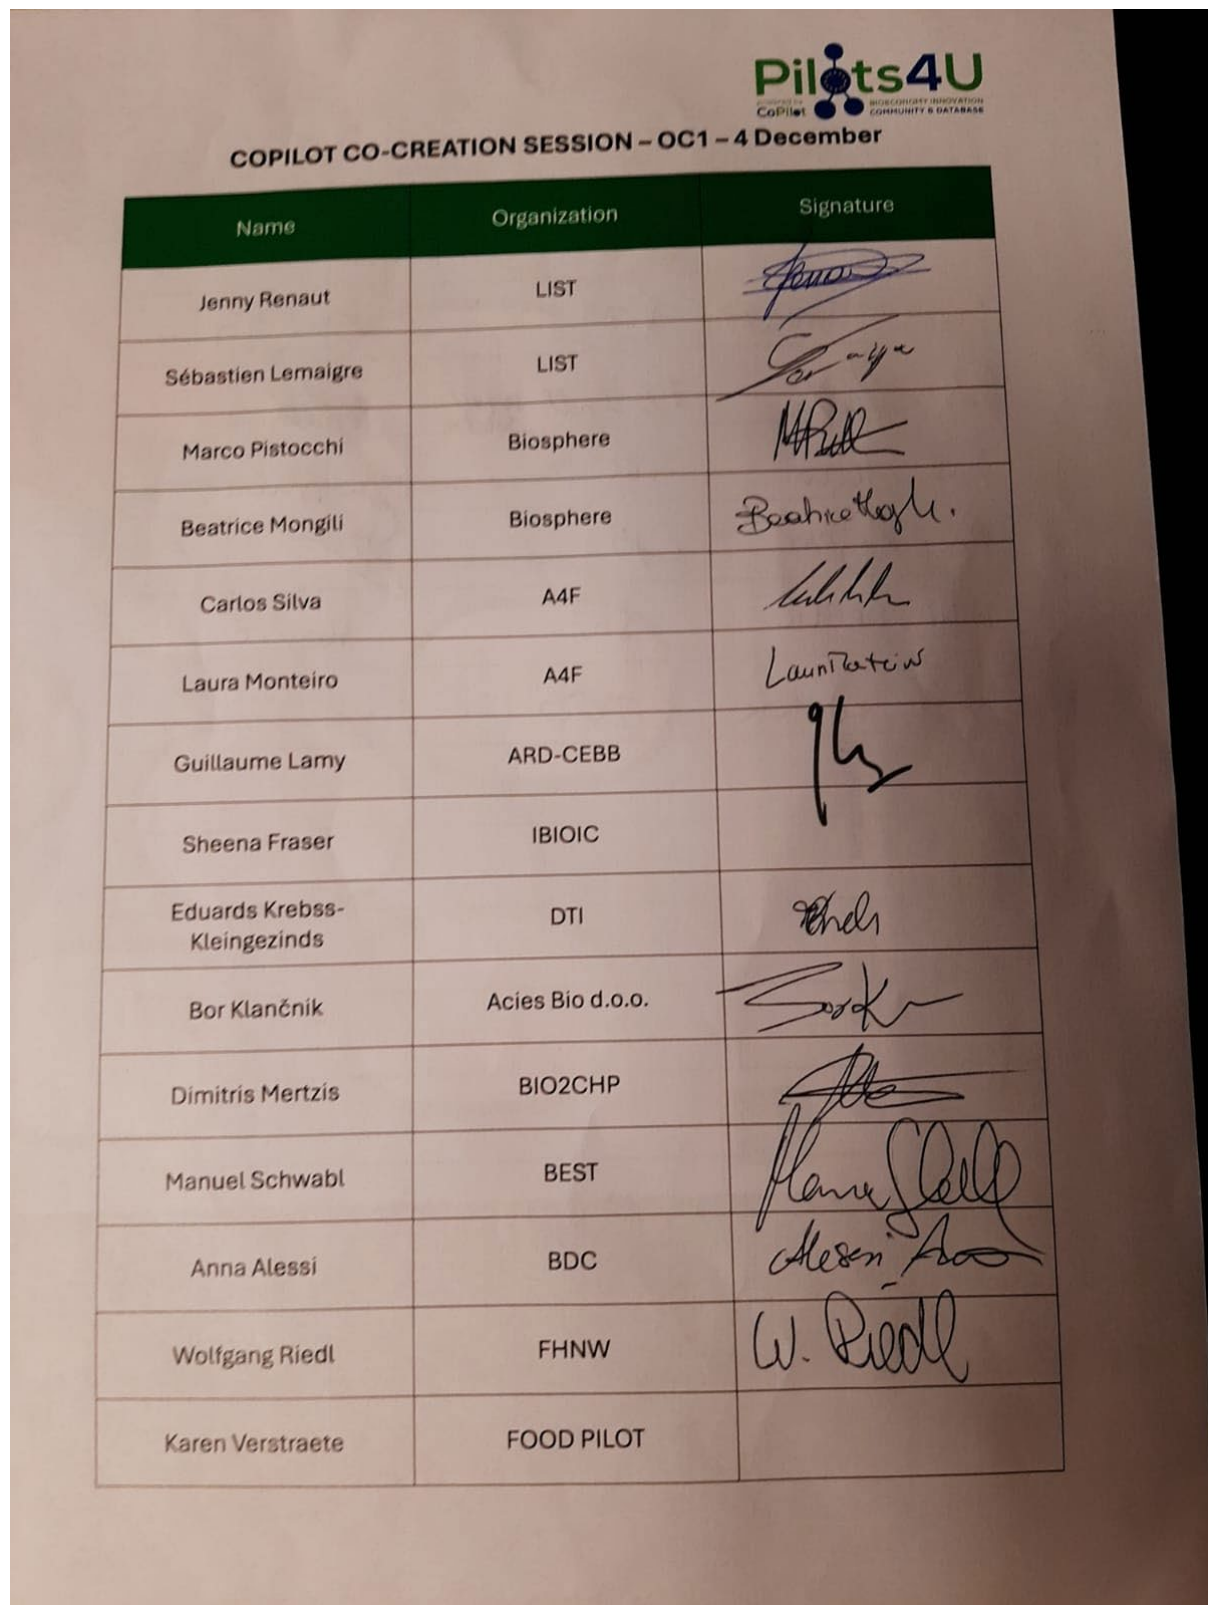 Pilots4U
powered by
CoPilot
BIOECONOMY INNOVATION
COMMUNITY & DATABASE
COPILOT CO-CREATION SESSION – OC1 – 4 December
Name Organization Signature
Jenny Renaut LIST
Sébastien Lemaigre LIST
Marco Pistocchi Biosphere
Beatrice Mongili Biosphere Beatrice
Carlos Silva A4F
Laura Monteiro A4F
Guillaume Lamy ARD-CEBB
Sheena Fraser IBIOIC
Eduards Krebss-
Kleingezinds DTI
Bor Klančnik Acies Bio d.o.o. Bor K
Dimitris Mertzis BIO2CHP
Manuel Schwabl BEST
Anna Alessi BDC Alessi Anna
Wolfgang Riedl FHNW W. Riedl
Karen Verstraete FOOD PILOT